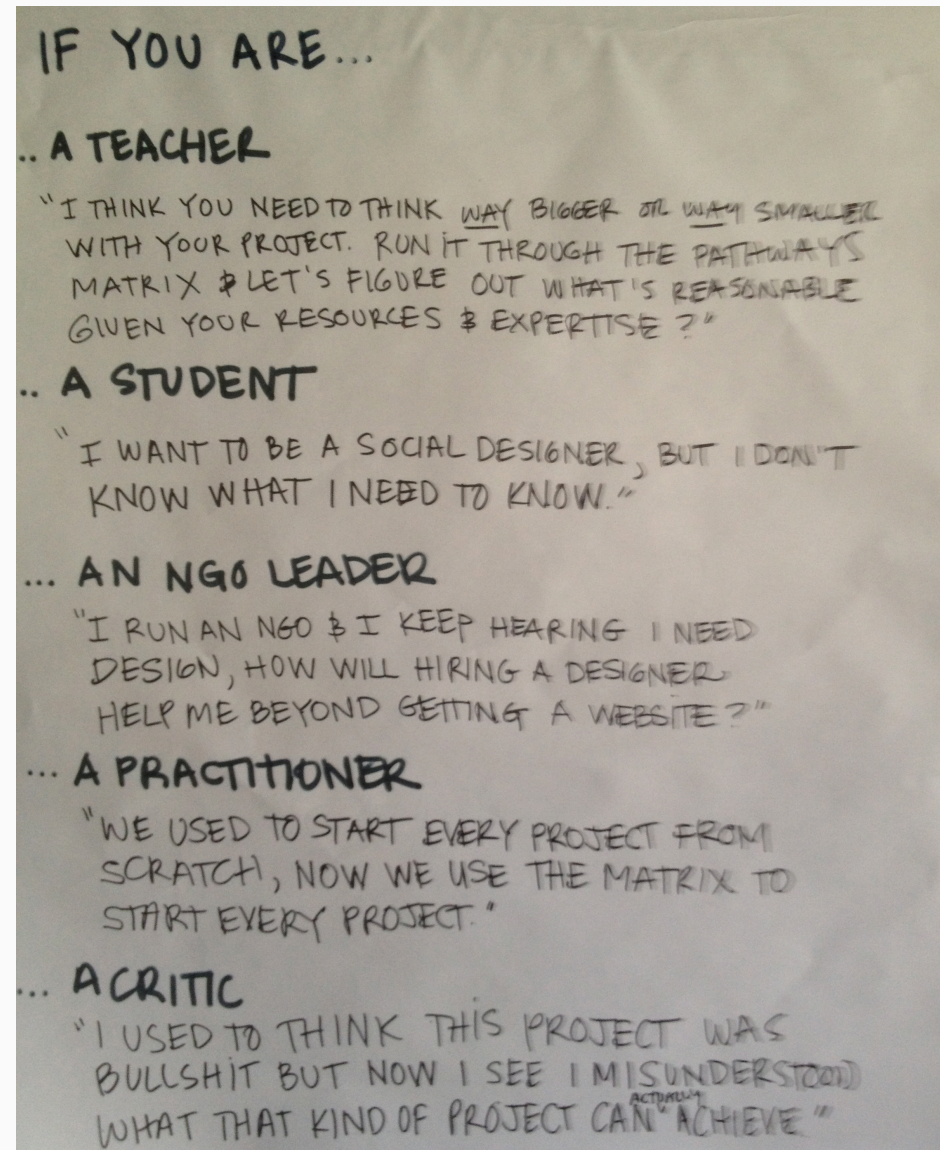 IF YOU ARE...
.. A TEACHER
"I THINK YOU NEED TO THINK WAY BIGGER OR WAY SMALLER
WITH YOUR PROJECT. RUN IT THROUGH THE PATHWAYS
MATRIX & LET'S FIGURE OUT WHAT'S REASONABLE
GIVEN YOUR RESOURCES & EXPERTISE?"
.. A STUDENT
"I WANT TO BE A SOCIAL DESIGNER, BUT I DON'T
KNOW WHAT I NEED TO KNOW."
... AN NGO LEADER
"I RUN AN NGO & I KEEP HEARING I NEED
DESIGN, HOW WILL HIRING A DESIGNER
HELP ME BEYOND GETTING A WEBSITE?"
... A PRACTITIONER
"WE USED TO START EVERY PROJECT FROM
SCRATCH, NOW WE USE THE MATRIX TO
START EVERY PROJECT."
... A CRITIC
"I USED TO THINK THIS PROJECT WAS
BULLSHIT BUT NOW I SEE I MISUNDERSTOOD
WHAT THAT KIND OF PROJECT CAN ACTUALLY ACHIEVE"